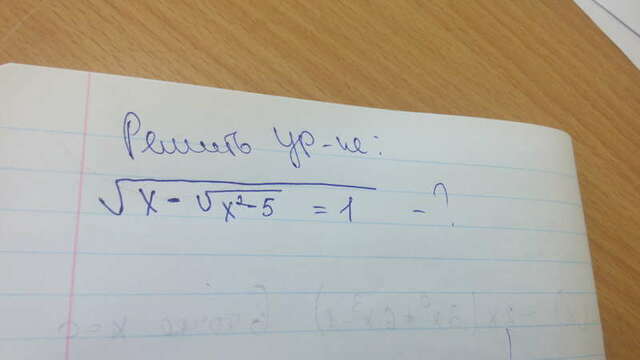 Решить ур-не:
√x - √x²-5 = 1 - ?